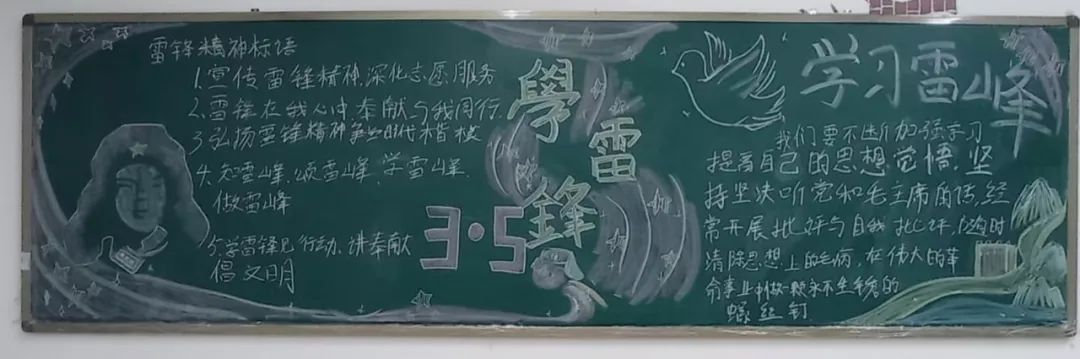 雷锋精神标语
1.宣传雷锋精神,深化志愿服务
2.雷锋在我心中,奉献与我同行.
3.弘扬雷锋精神争当时代楷模
4.知雷峰,颂雷峰,学雷峰,
做雷峰
5.学雷锋见行动,讲奉献
倡文明
學
雷
鋒
3·5
学习雷峰
我们要不断加强学习
提高自己的思想觉悟,坚
持坚决听党和毛主席的话,经
常开展批评与自我批评,随时
清除思想上的毛病,在伟大的革
命事业中做一颗永不生锈的
螺丝钉